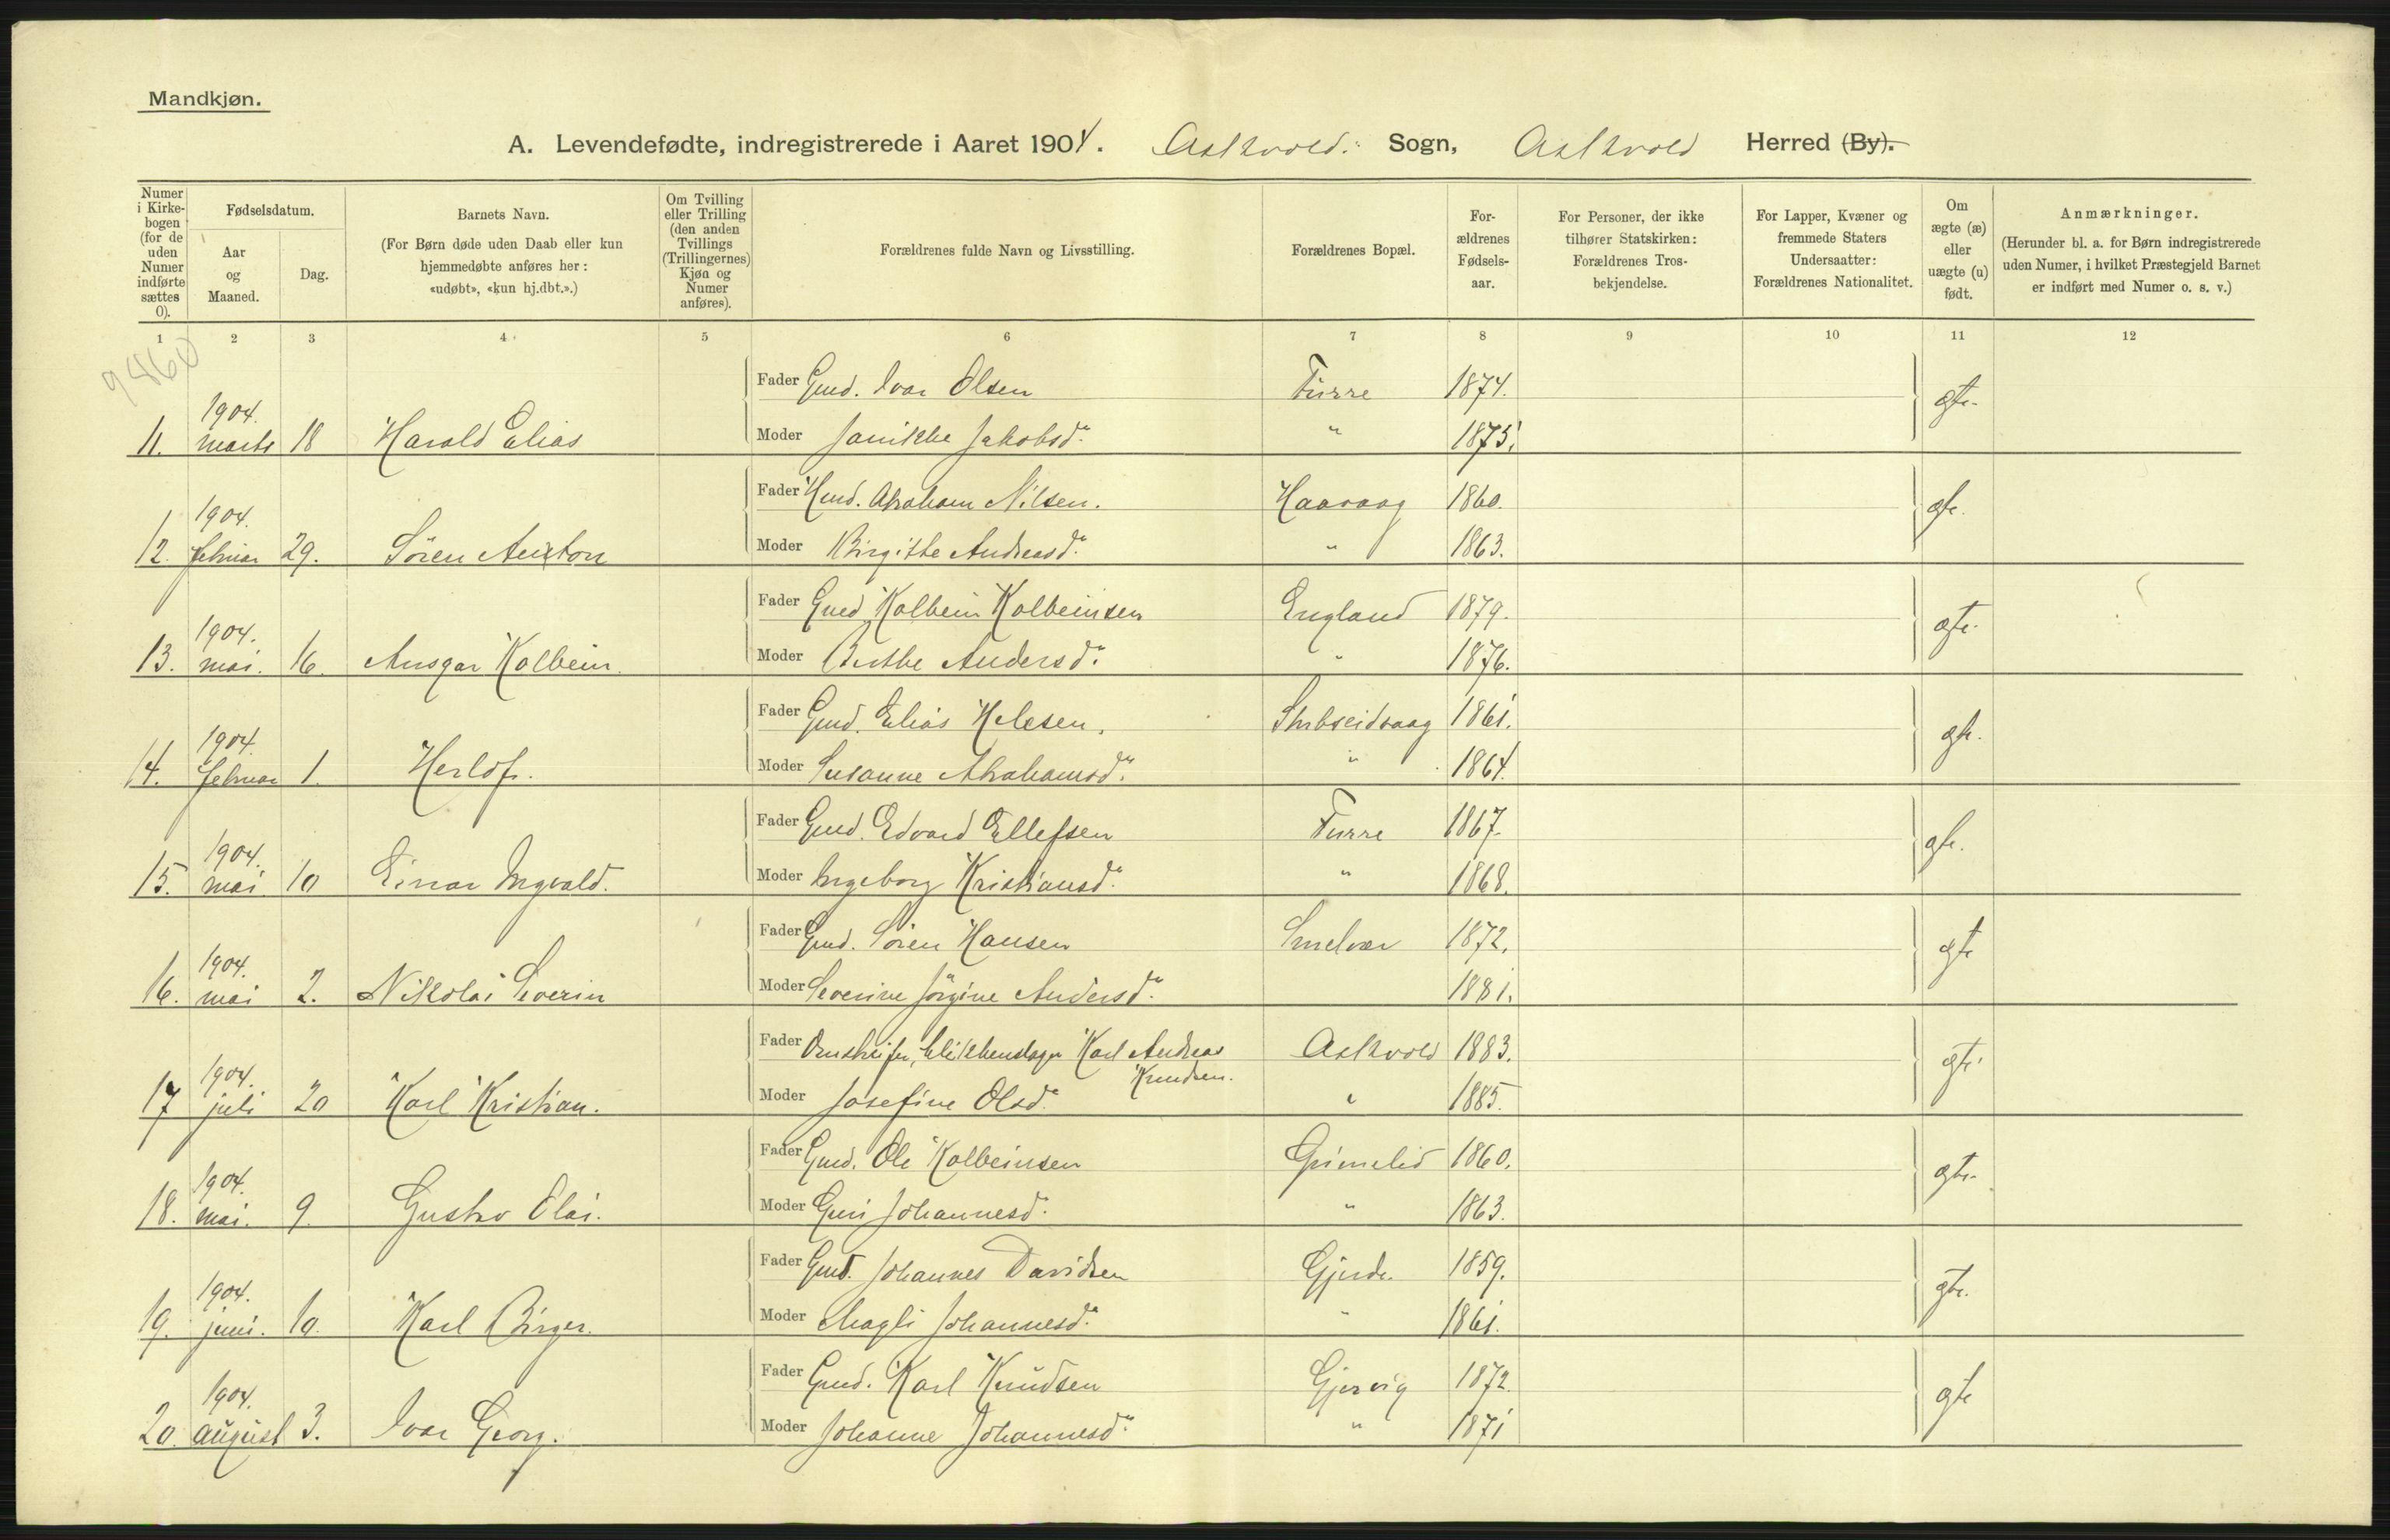 Mandkjøn.
A. Levendefødte, indregistrerede i Aaret 1904. Askvold. Sogn, Askvold Herred (By).
Numer i Kirke-bogen (for de uden Numer indførte sættes 0).
Fødselsdatum.
Aar og Maaned.
Dag.
Barnets Navn.
(For Børn døde uden Daab eller kun hjemmedøbte anføres her: «udøbt», «kun hj.dbt.».)
Om Tvilling eller Trilling (den anden Tvillings (Trillingernes) Kjøn og Numer anføres).
Forældrenes fulde Navn og Livsstilling.
Forældrenes Bopæl.
For-ældrenes Fødsels-aar.
For Personer, der ikke tilhører Statskirken: Forældrenes Tros-bekjendelse.
For Lapper, Kvæner og fremmede Staters Undersaatter: Forældrenes Nationalitet.
Om ægte (æ) eller uægte (u) født.
Anmærkninger.
(Herunder bl. a. for Børn indregistrerede uden Numer, i hvilket Præstegjeld Barnet er indført med Numer o. s. v.)
1 2 3 4 5 6 7 8 9 10 11 12
9460
Fader Gmd. Ivar Olsen Furre 1874. gte.
11. 1904. marts 18 Harald Elias Moder Janikke Jakobsd. " 1875.
Fader Hmd. Abraham Nilsen. Haavaag 1860. gte.
12. 1904. februar 29. Sören Anton Moder Birgitte Andreasd. " 1863.
Fader Gmd Kolbein Kolbeinsen England 1879. gte.
13. 1904. mai. 16. Ansgar Kolbein. Moder Berthe Andersd. " 1876.
Fader Gmd. Elias Nelesen. Stubseidvaag 1861. gte.
14. 1904. februar 1. Herlof. Moder Susanne Abrahamsd. " 1864.
Fader Gmd. Edvard Ellefsen Furre 1867. gte.
15. 1904. mai 10 Einar Ingvald. Moder Ingeborg Kristiansd. " 1868.
Fader Gmd. Sören Hansen Smelvær 1872. gte
16. 1904. mai 2. Nikolai Severin Moder Severine Jörgine Andersd. 1881.
Fader Karl Andreas Knudsen. Askvold 1883. gte
17 1904. juli 20 Karl Kristian. Moder Josefine Olsd. " 1885.
Fader Gmd. Ole Kolbeinsen Grimelid 1860. gte.
18. 1904. mai. 9. Gustav Olai. Moder Guri Johannesd. " 1863.
Fader Gmd. Johannes Davidsen Gjerde. 1859. gte.
19. 1904. juni. 10. Karl Birger. Moder Magli Johannesd. " 1861.
Fader Gmd. Karl Knudsen Gjervig 1872. gte
20. 1904. august 3. Ivar Georg. Moder Johanne Johannesd. " 1871